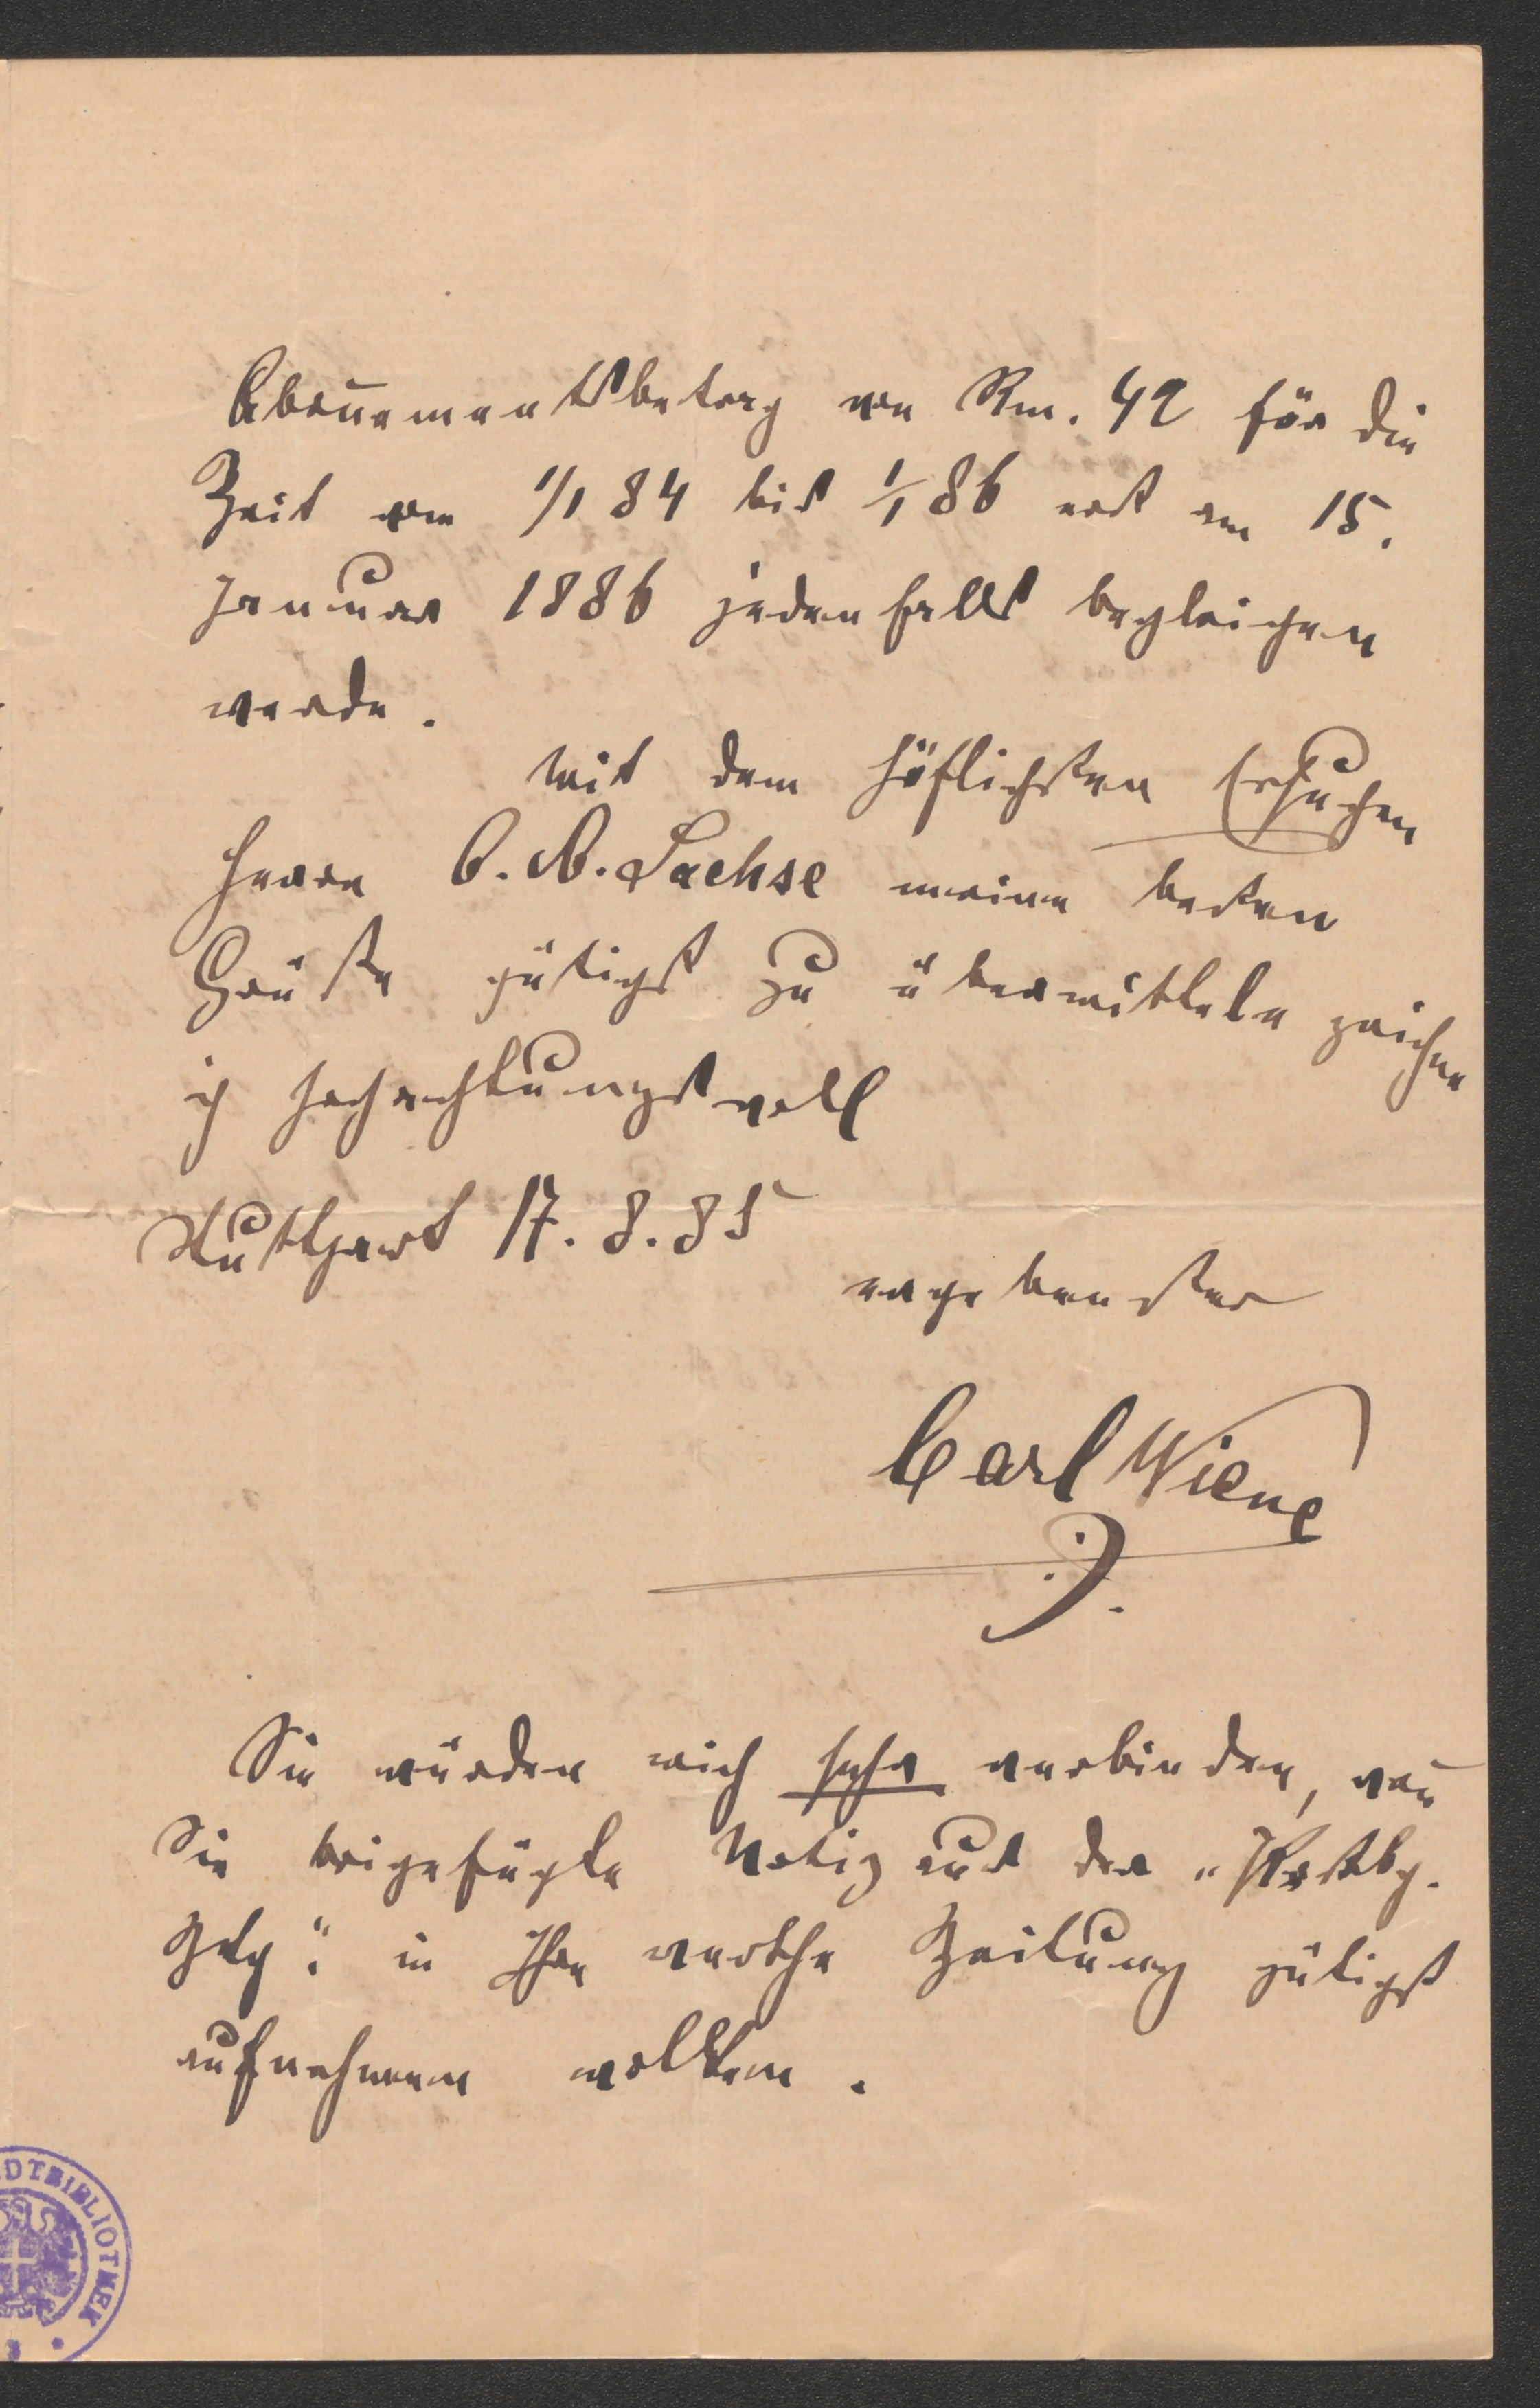 Abon̄ementsbetrag von Rm. 42 für die
Zeit vom 1/1 84 bis 1/1 86 erst am 15.
Januar 1886 jedenfalls begleichen
werde.
Mit dem höflichsten Ersuchen
Herrn C. A. Sachse meine besten
Grüße gütigst zu übermitteln zeichne
ich hochachtungsvoll
Stuttgart 17. 8. 85
ergebenster
Carl Wiene
Sie würden mich sehr verbinden, wen̄
Sie beigefügte Notiz aus der
Ztg." in Ihre werthe Zeitung gütigst
aufnehmen wollten.
DTBIBLIOTHEK